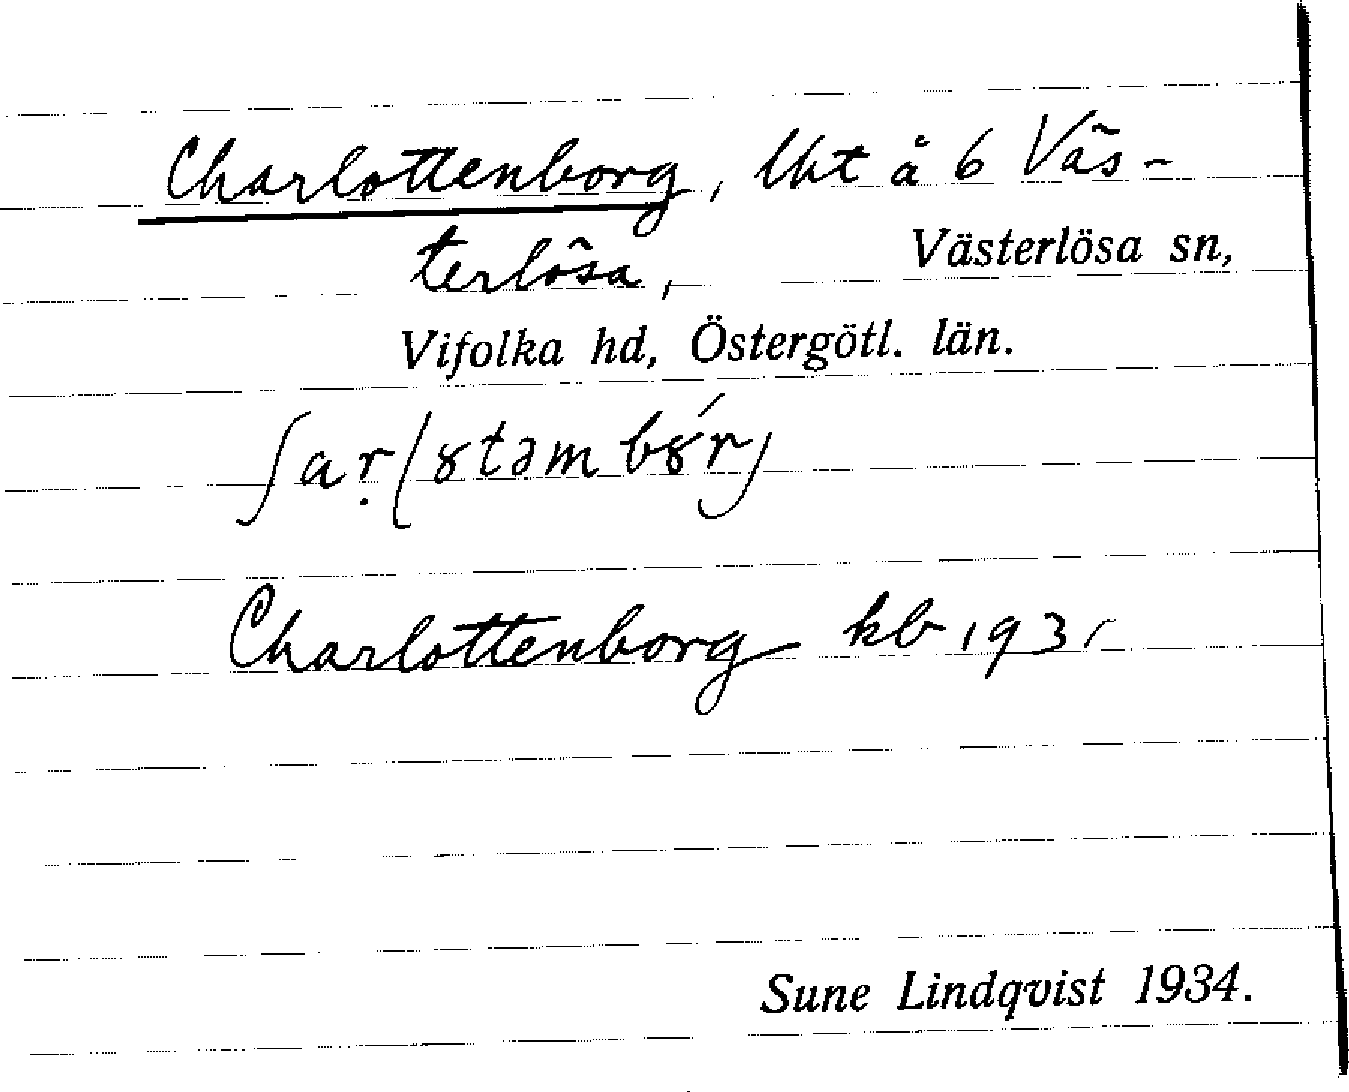 Charlottenborg, lht å 6 Väs-
terlösa, Västerlösa sn,
Vifolka hd, Östergötl. län.
ʃaṛlɤtəmbɤ́rj
Charlottenborg kb 1931
Sune Lindqvist 1934.